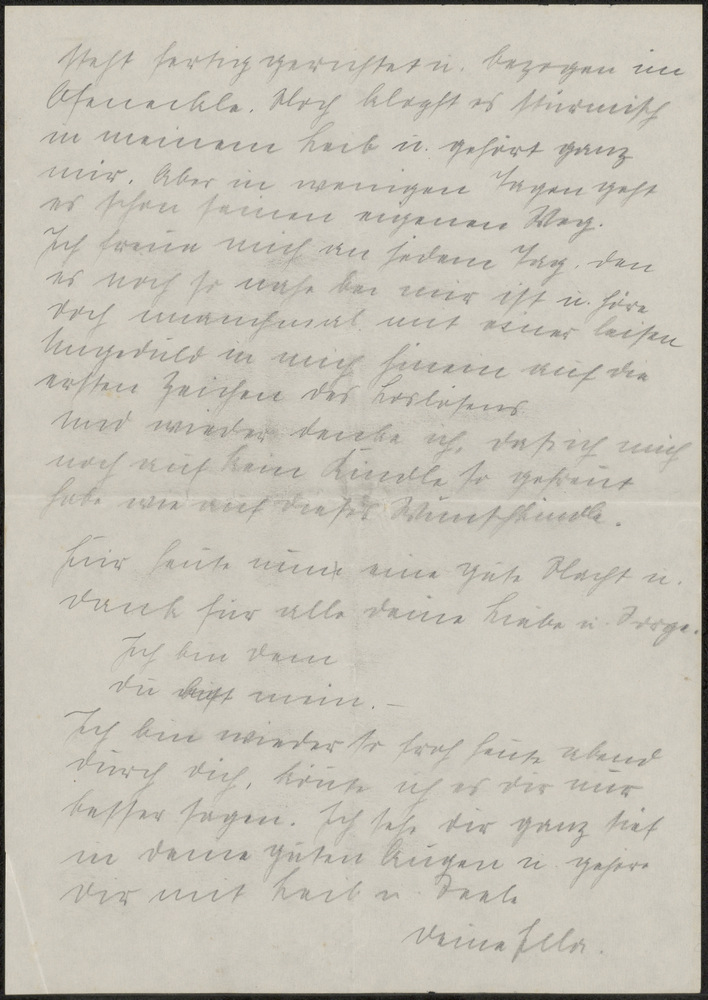 steht fertig gerichtet u. bezogen im
Ofeneckle. Noch klopft es stürmisch
in meinem Leib u. gehört ganz
mir. Aber in wenigen Tagen geht
es schon seinen eigenen Weg.
Ich freue mich an jedem Tag, den
es noch so nahe bei mir ist u. höre
doch manchmal mit einer leisen
Ungeduld in mich hinein auf die
ersten Zeichen des Loslösens
und wieder denke ich, daß ich mich
noch auf kein Kindle so gefreut
habe wie auf dieses Wunschkindle.
Für heute nun eine gute Nacht u.
Dank für alle deine Liebe u. Sorge.
Ich bin dein
du bist mein. –
Ich bin wieder so froh heute abend
durch dich, könnte ich es dir nur
besser sagen. Ich sehe dir ganz tief
in deine guten Augen u. gehöre
dir mit Leib u. Seele
deine Ella.